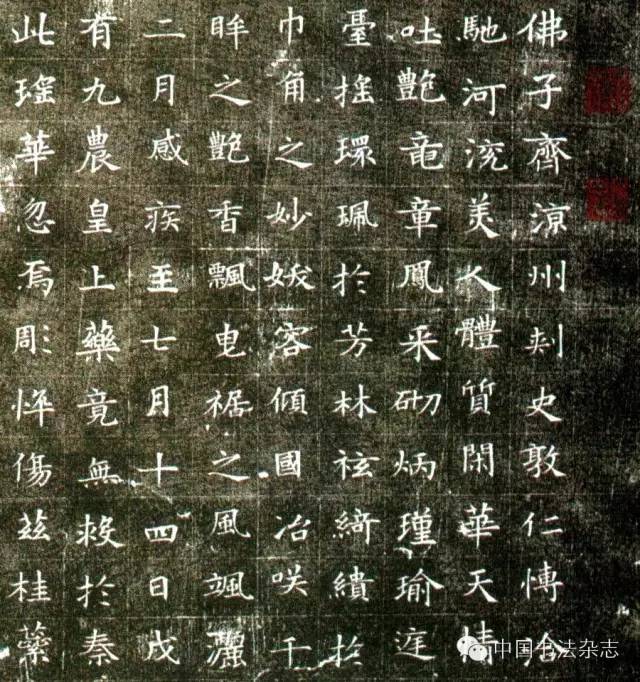 佛子齊涼州刺史敦仁博洽
馳河渷美人體質閑華天情
吐艷竜章鳳采砌炳瑾瑜庭
臺搖環珮於芳林袨綺繢於
巾角之妙妖容傾國冶咲千
眸之艷香飄曳裾之風颯灑
二月感疾至七月十四日戊
有九農皇上藥竟無救於秦
此瑤華忽焉彫悴傷茲桂蘂
中国书法杂志